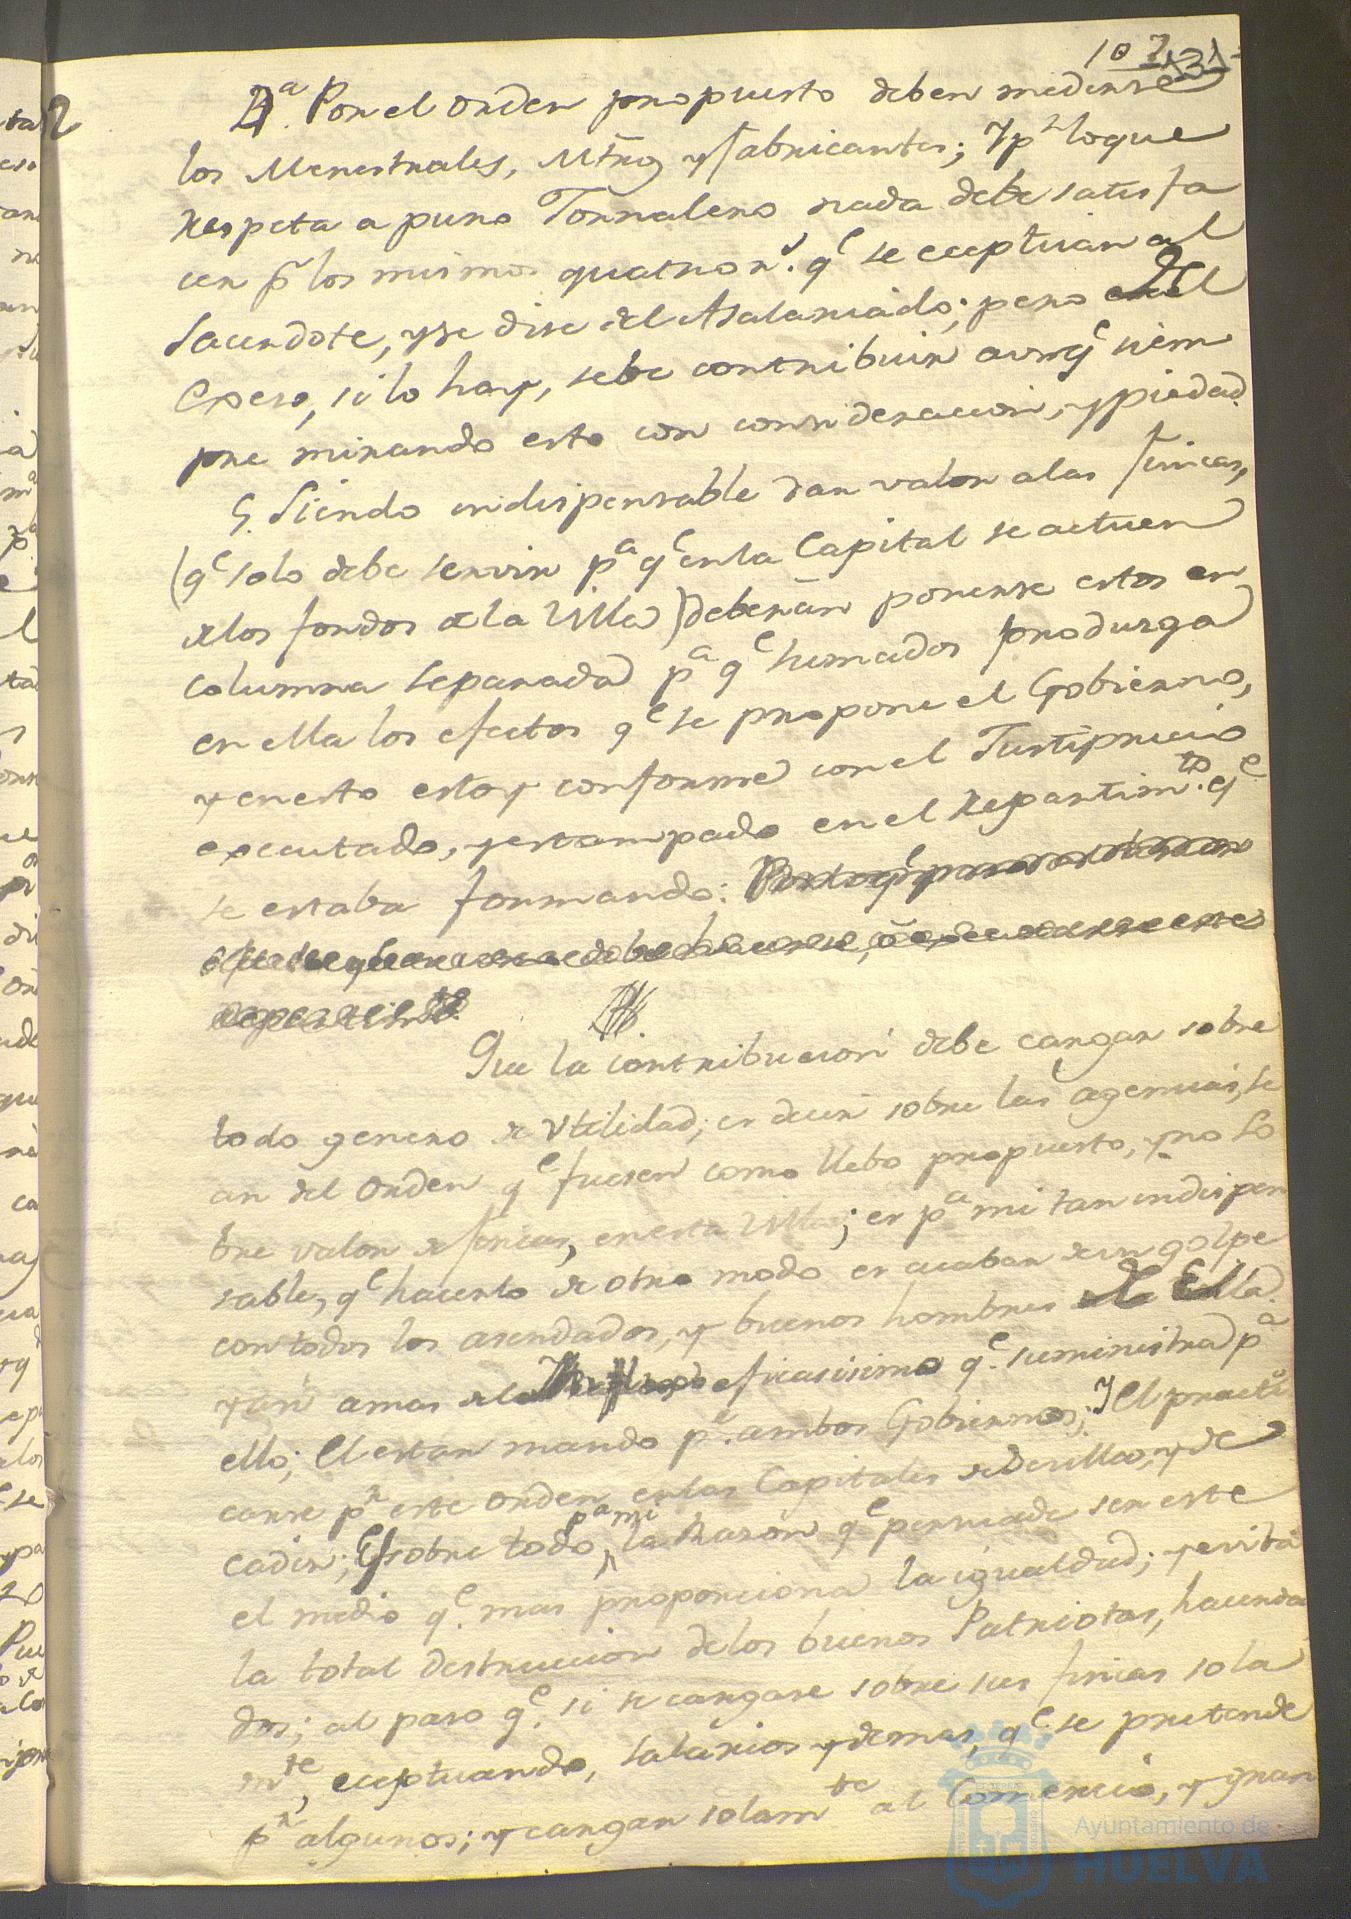 107 131
4.ª Por el orden propuesto deben medirse
los Menestrales, Mtros y fabricantes; Y p.r loque
respeta a puro Jornalero nada debe satisfa
cer p.r los mismos quatro r.s q.e se eceptuan al
Sacerdote, y se dise del Asalariado; pero el
Exeso, si lo hay, debe contribuir aunq.e siem
pre mirando esto con consideracion, y piedad.
5. Siendo indispensable dar valor alas fincas,
(q.e solo debe servir p.a q.e enla Capital se actuen
delos fondos dela Villa) deberán ponerse estos en
columna separada p.a q.e sumados produsga
en ella los efectos q.e se propone el Gobierno,
y enesto estoy conforme con el Justiprecio
executado, y estampado en el Repartim.to q.e
se estaba formando:
Que la contribucion debe cargar sobre
todo genero de Utilidad; es decir sobre las agencias, se
an del orden q.e fuesen como llebo propuesto, y no so
bre valor de fincas, enesta Villa; es p.a mi tan indispen
sable, q.e hacerlo de otro modo es acabar de un golpe
contodos los asendados, y buenos hombres de Ella.
y an amas dela eficasisimo q.e suministra p.a
ello; El estar mando p.r ambos Gobiernos; Y El practi
carse p.r este orden enlas Capitales de Sevilla, y de
Cadiz; Es sobre todo, p.a mi la Razon q.e persuade ser este
el medio q.e mas proporciona la igualdad; y evita
la total destruccion delos buenos Patriotas, hacenda
dos; al paso q.e si se cargase sobre sus fincas sola
m.te, eceptuando, salarios y demas, q.e se pretende
p.r algunos; y cargar solam.te al Comercio, y gran
Ayuntamiento de
HUELVA